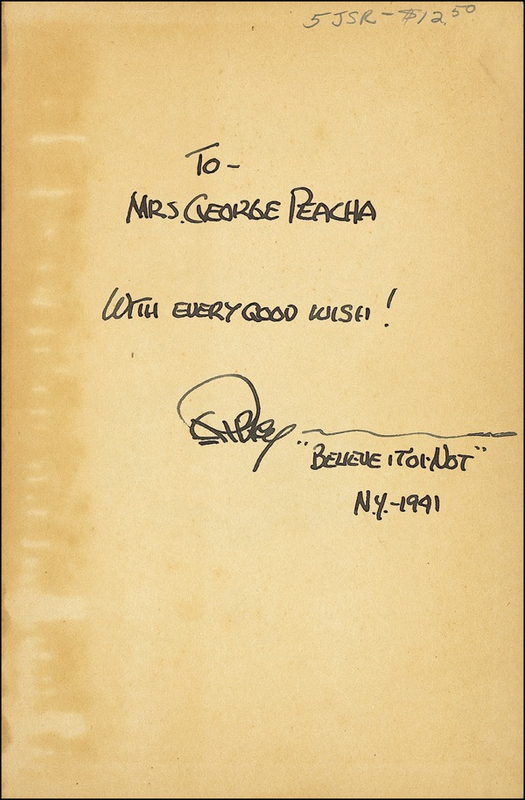 5 JSR - $12.50
To -
MRS. GEORGE PEACHA
WITH EVERY GOOD WISH!
Ripley
"BELIEVE IT OR NOT"
N.Y. - 1941